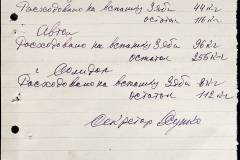 Расходовано на вспашку Зяби 44 кг
остаток 116 кг
Автол
Расходовано на вспашку Зяби 96 кг
остаток 255 кг
Солидол
Расходовано на вспашку Зяби 8 кг
остаток 112 кг
Секретарь